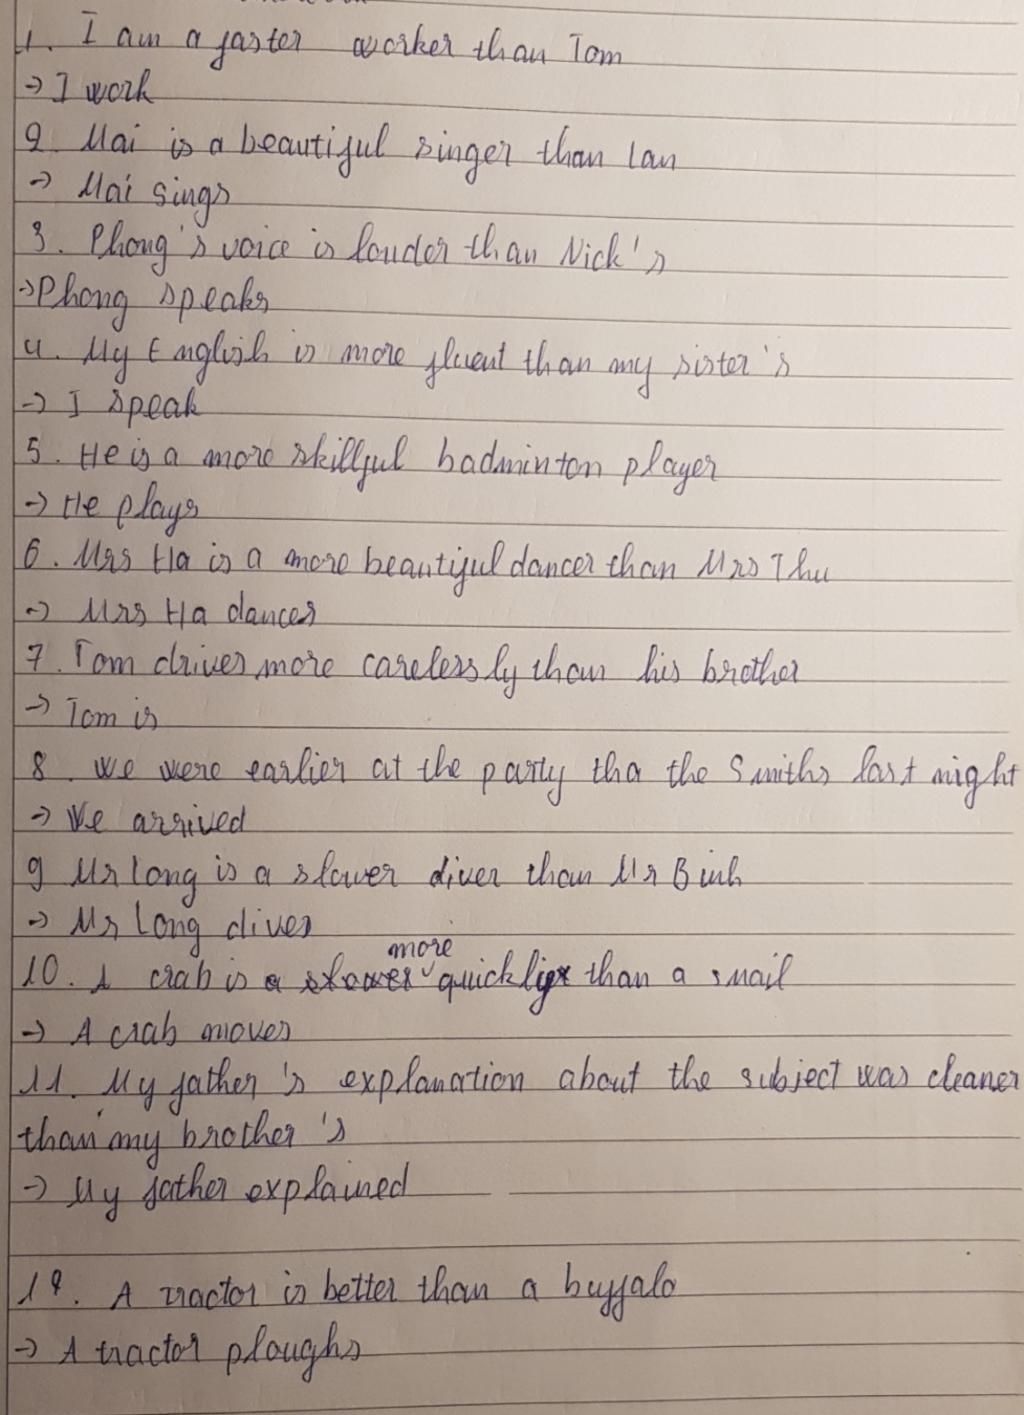 1. I am a faster worker than Tom
-> I work
2. Mai is a beautiful singer than Lan
-> Mai sings
3. Phong's voice is louder than Nick's
->Phong speaks
4. My English is more fluent than my sister's
-> I speak
5. He is a more skillful badminton player
-> He plays
6. Mrs Ha is a more beautiful dancer than Mrs Thu
-> Mrs Ha dances
7. Tom drives more carelessly than his brother
-> Tom is
8. We were earlier at the party tha the Smiths last night
-> We arrived
9 Mr Long is a slower diver than Mr Binh
-> Mr Long dives
10. A crab is more quickly than a snail
-> A crab moves
11. My father's explanation about the subject was cleaner
than my brother's
-> My father explained
12. A tractor is better than a buffalo
-> A tractor ploughs